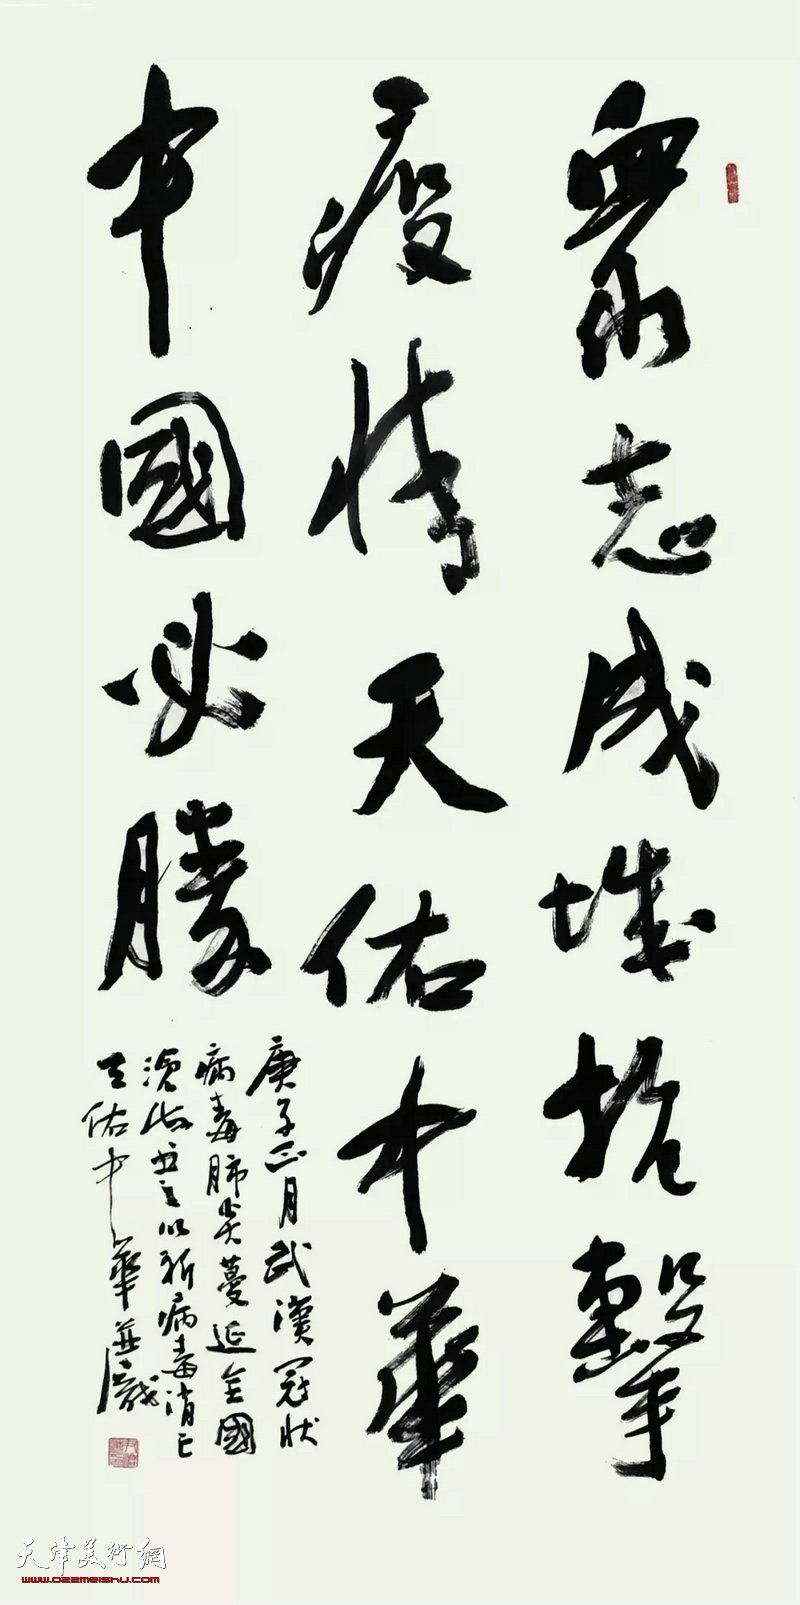 眾志成城抗擊
疫情天佑中華
中國必勝
庚子正月武漢冠狀
病毒肺炎蔓延全國
書之以祈病毒消亡
天佑中華
天津美術網
www.022meishu.com